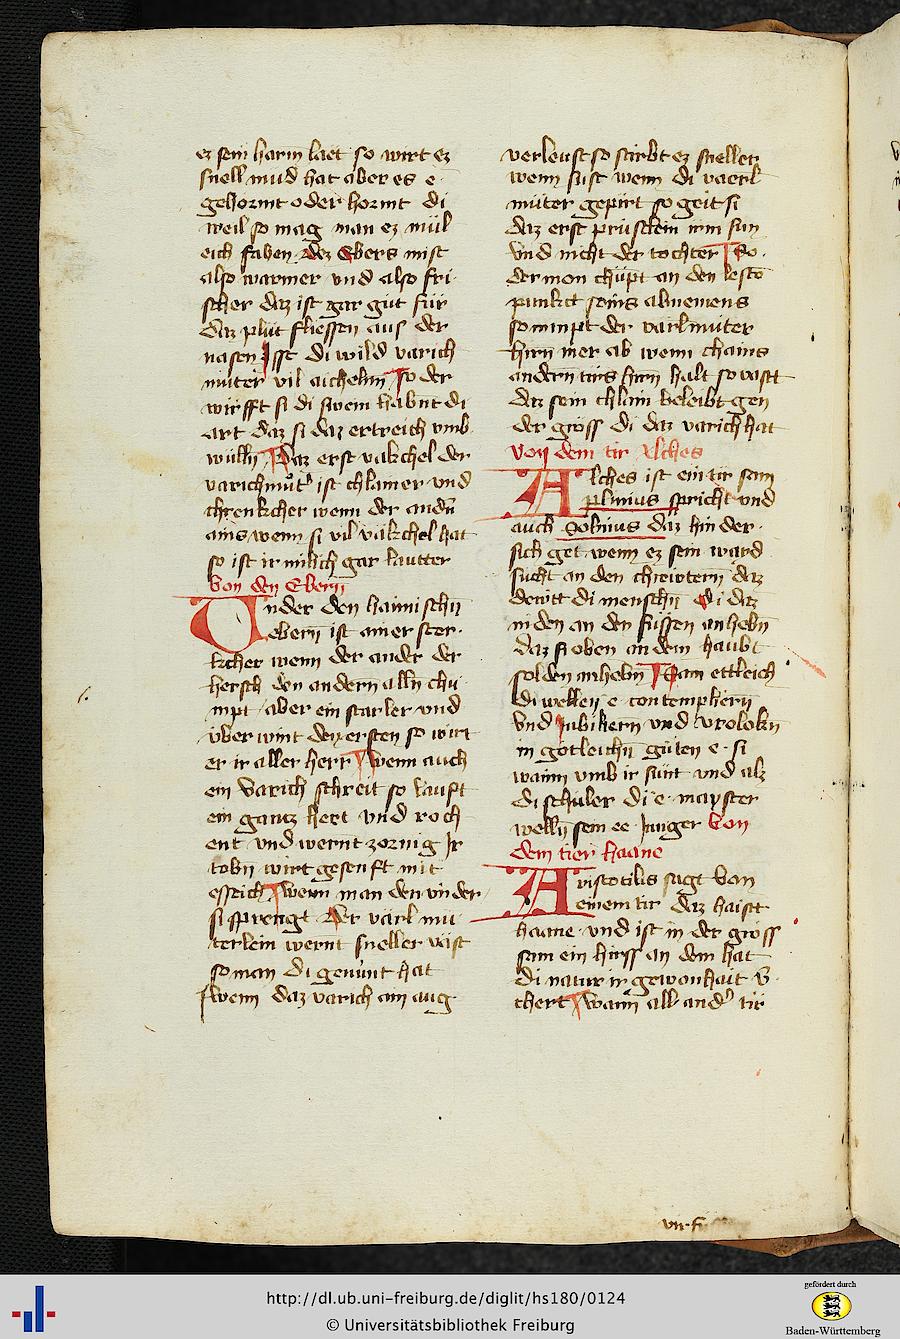 ez sein harm laet so wirt ez
snell mud hat aber es e
gehormt oder hormt di
weil so mag man ez mül
eich fahen dez Ebers mist
also warmer vnd also fri
scher daz ist gar güt für
daz plüt fliessen aus der
nasen Isst di wild varich
müter vil aicheln so der
würfft si di swein habnt di
art daz si daz ertreich vmb
wülln Daz erst väkchel der
varichmüt' ist chlainer vnd
chrenkcher wenn der andn̄
ains wenn si vil väkchel hat
so ist ir milich gar lautter
Von den Ebern
Vnder den haimischn̄
ebern ist ainer ster
kcher wenn der ander der
hersch den andern alln chü
mpt aber ein starker vnd
über wint den ersten so wirt
er ir aller herr wenn auch
ein varich schreit so lauft
ein gantz hert vnd roch
ent vnd wernt zornig Ir
tobn̄ wirt gesenft mit
essich wenn man den vnder
si sprengt Der värl mü
terlein wernt sneller väist
so man di genünt hat
wenn daz varich ain aug
verleust so stirbt ez sneller
wenn sust wenn di värl
müter gepirt so geit si
daz erst prüstlein irm sun
vnd nicht der tochter So
der mon chüpt an den lestō
punkct seins abnemens
so nimpt der värlmüter
hirn mer ab wenn chains
andern tirs hirn halt so vastt
daz sein chlain beleibt gen
der gröss di daz varich hat
Von dem tir Alches
Alches ist ein tir sam
plinius spricht vnd
auch solinus daz hin der
sich get wenn ez sein waid
sucht an den chrewtern daz
dewtt di menschn̄ di daz
niden an den füssen anhebn̄
daz si oben an dem haubt
solden anhebn̄ Sam ettleich
di wellen e contemplirn̄
vnd Jubilirn vnd vrolokn̄
in götleichn̄ güten e si
wainn vmb ir sünt vnd alz
di schüler di e mayster
welln̄ sein ee Junger Von
dem tier haane
Aristotilis sagt von
einem tir daz haist
haane vnd ist in der gröss
sam ein hirss an dem hat
di natur ir gewonhait v̄
chert wann all and' tir
http://dl.ub.uni-freiburg.de/diglit/hs180/0124
© Universitätsbibliothek Freiburg
gefördert durch
Baden-Württemberg